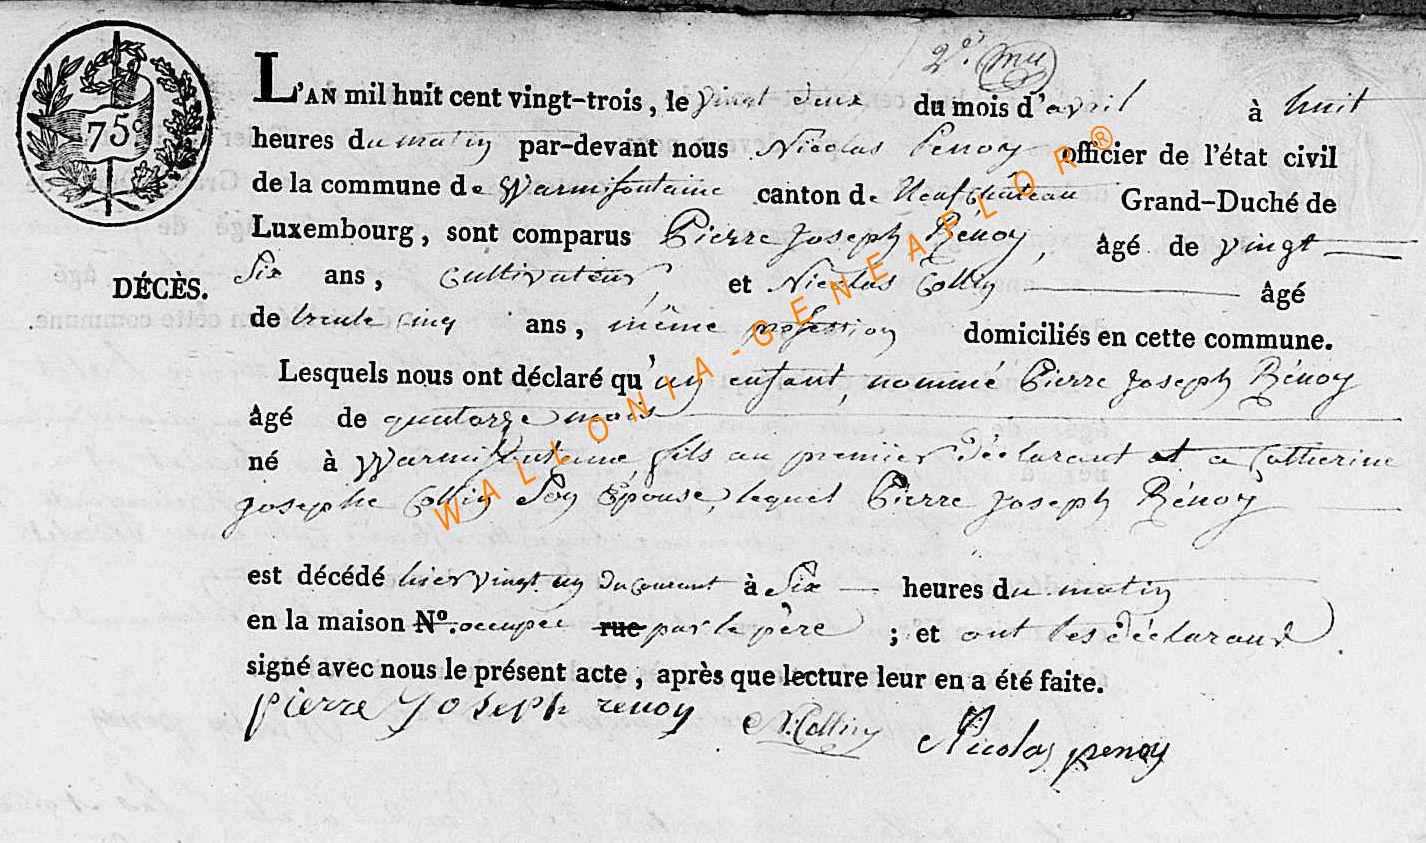 2e. mu
75c
L'AN mil huit cent vingt-trois, le vingt deux du mois d'avril à huit
heures du matin par-devant nous Nicolas Penoy officier de l'état civil
de la commune de Warmifontaine canton de Neufchâteau Grand-Duché de
Luxembourg, sont comparus Pierre Joseph Rénoy, âgé de vingt
DÉCÈS.
Six ans, Cultivateur, et Nicolas Collin âgé
de trente cinq ans, même profession domiciliés en cette commune.
Lesquels nous ont déclaré qu'un enfant, nommé Pierre Joseph Rénoy
âgé de quatorze mois
né à Warmifontaine, fils au premier déclarant et a Catherine
Josephe Collin Son Épouse, lequel Pierre Joseph Rénoy
est décédé hier vingt un du courant à Six heures du matin
en la maison N°. occupée rue par le père ; et ont les déclarans
signé avec nous le présent acte, après que lecture leur en a été faite.
pierre Joseph renoy N. Collin Nicolas penoy
WALLONIA-GENEAFLOR®